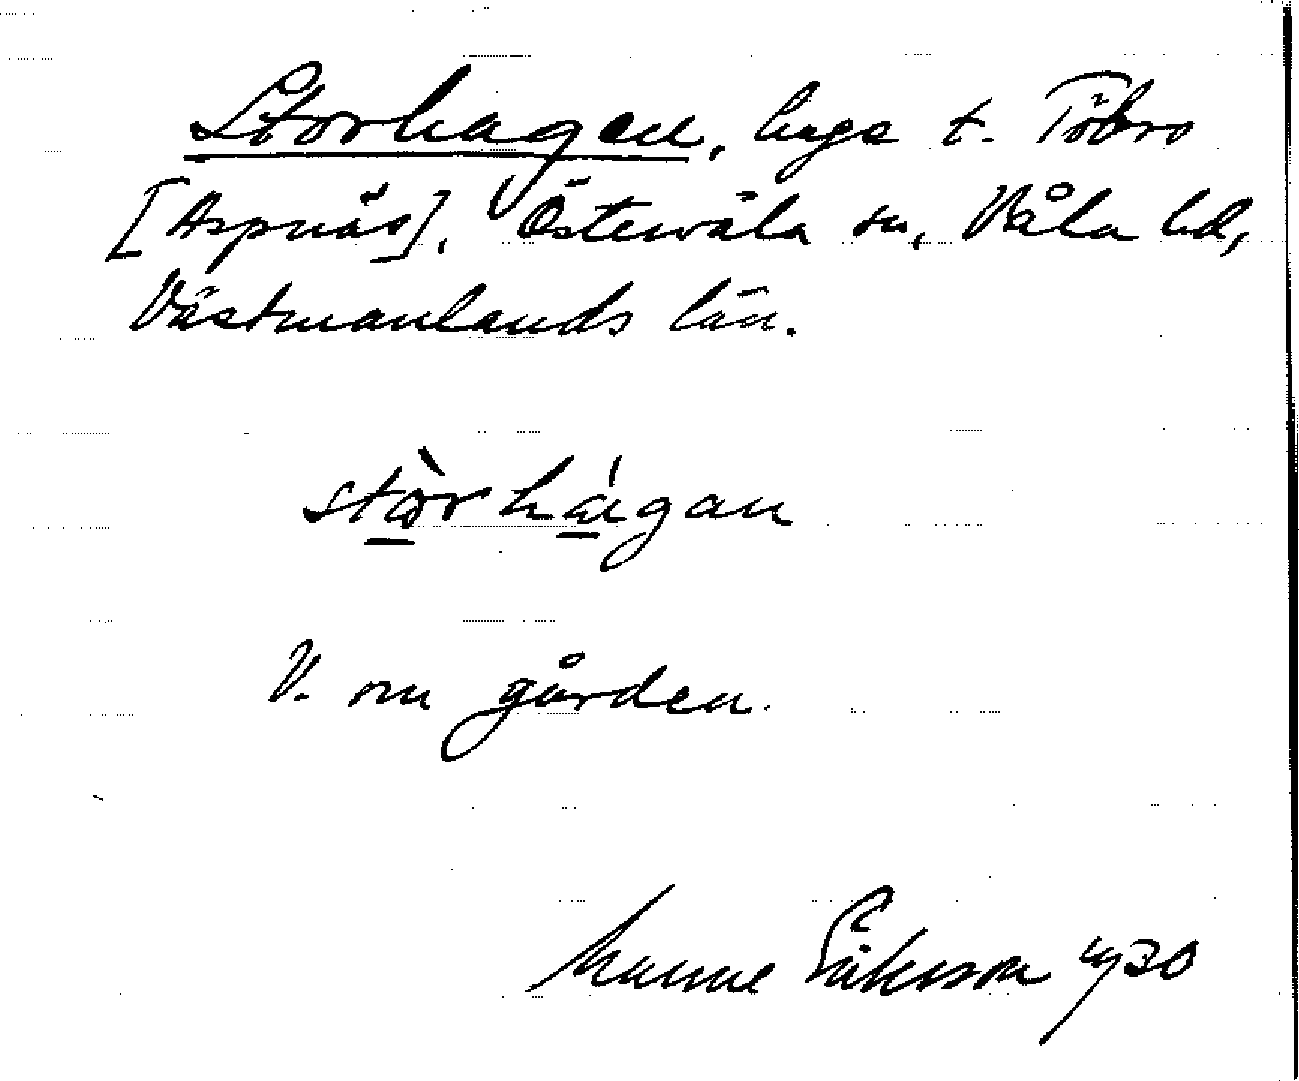 Storhagen, hage t. Töbro
[Aspnäs], Östervåla sn, Våla hd,
Västmanlands län.
stòrhágan
V. om gården.
Manne Eriksson 1930